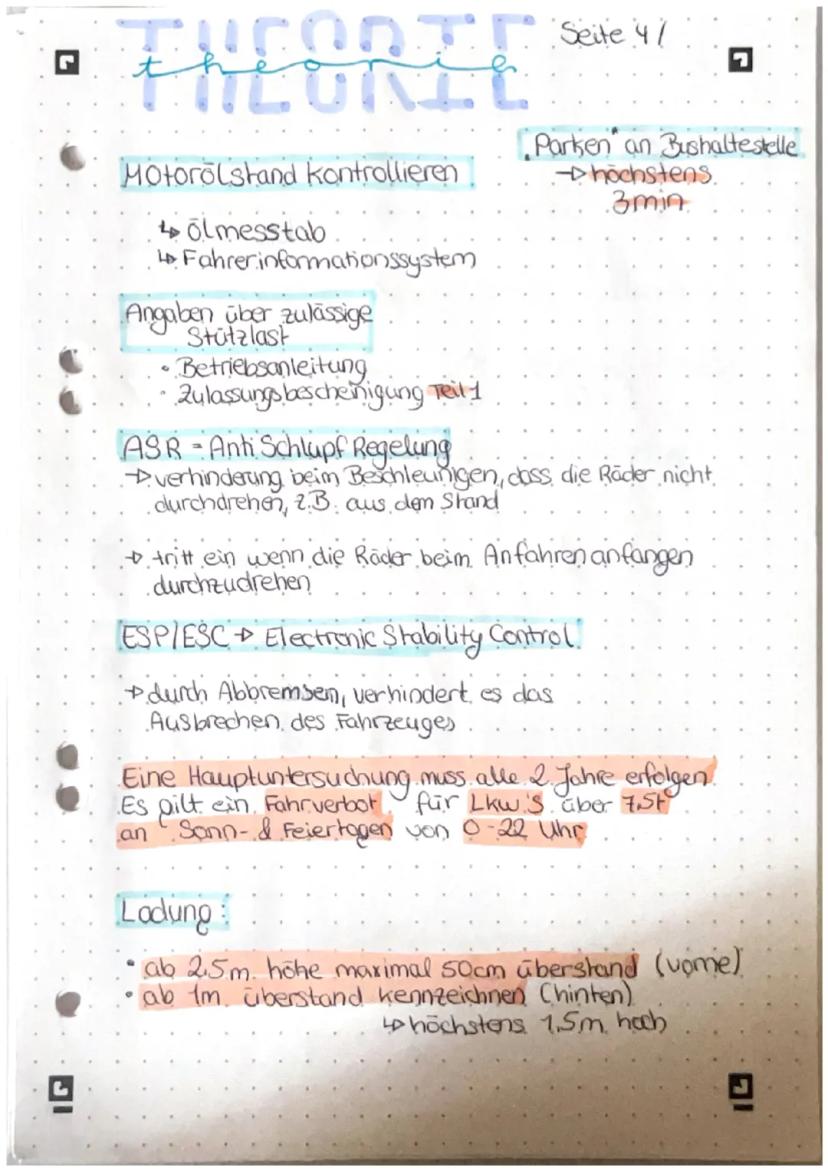 THEORIE
theorie
Seite 4/
"Parken" an Bushaltestelle
→ höchstens
3min
Motorölstand kontrollieren
↳ Ölmesstab
↳ Fahrerinformationssystem
Angaben über zulässige
Stützlast
• Betriebsanleitung
• Zulassungsbescheinigung Teil 1
ASR - Anti Schlupf Regelung
→ verhinderung beim Beschleunigen, dass die Räder nicht
durchdrehen, z.B. aus dem Stand
→ tritt ein wenn die Räder beim Anfahren anfangen
durchzudrehen
ESP/ESC → Electronic Stability Control
→ durch Abbremsen, verhindert es das
Ausbrechen des Fahrzeuges
Eine Hauptuntersuchung muss alle 2 Jahre erfolgen.
Es gilt ein Fahrverbot für Lkw's über 7,5t
an Sonn- & Feiertagen von 0-22 Uhr
Ladung:
• ab 2,5m höhe maximal 50cm überstand (vorne)
• ab 1m überstand kennzeichnen (hinten)
↳ höchstens 1,5m hoch